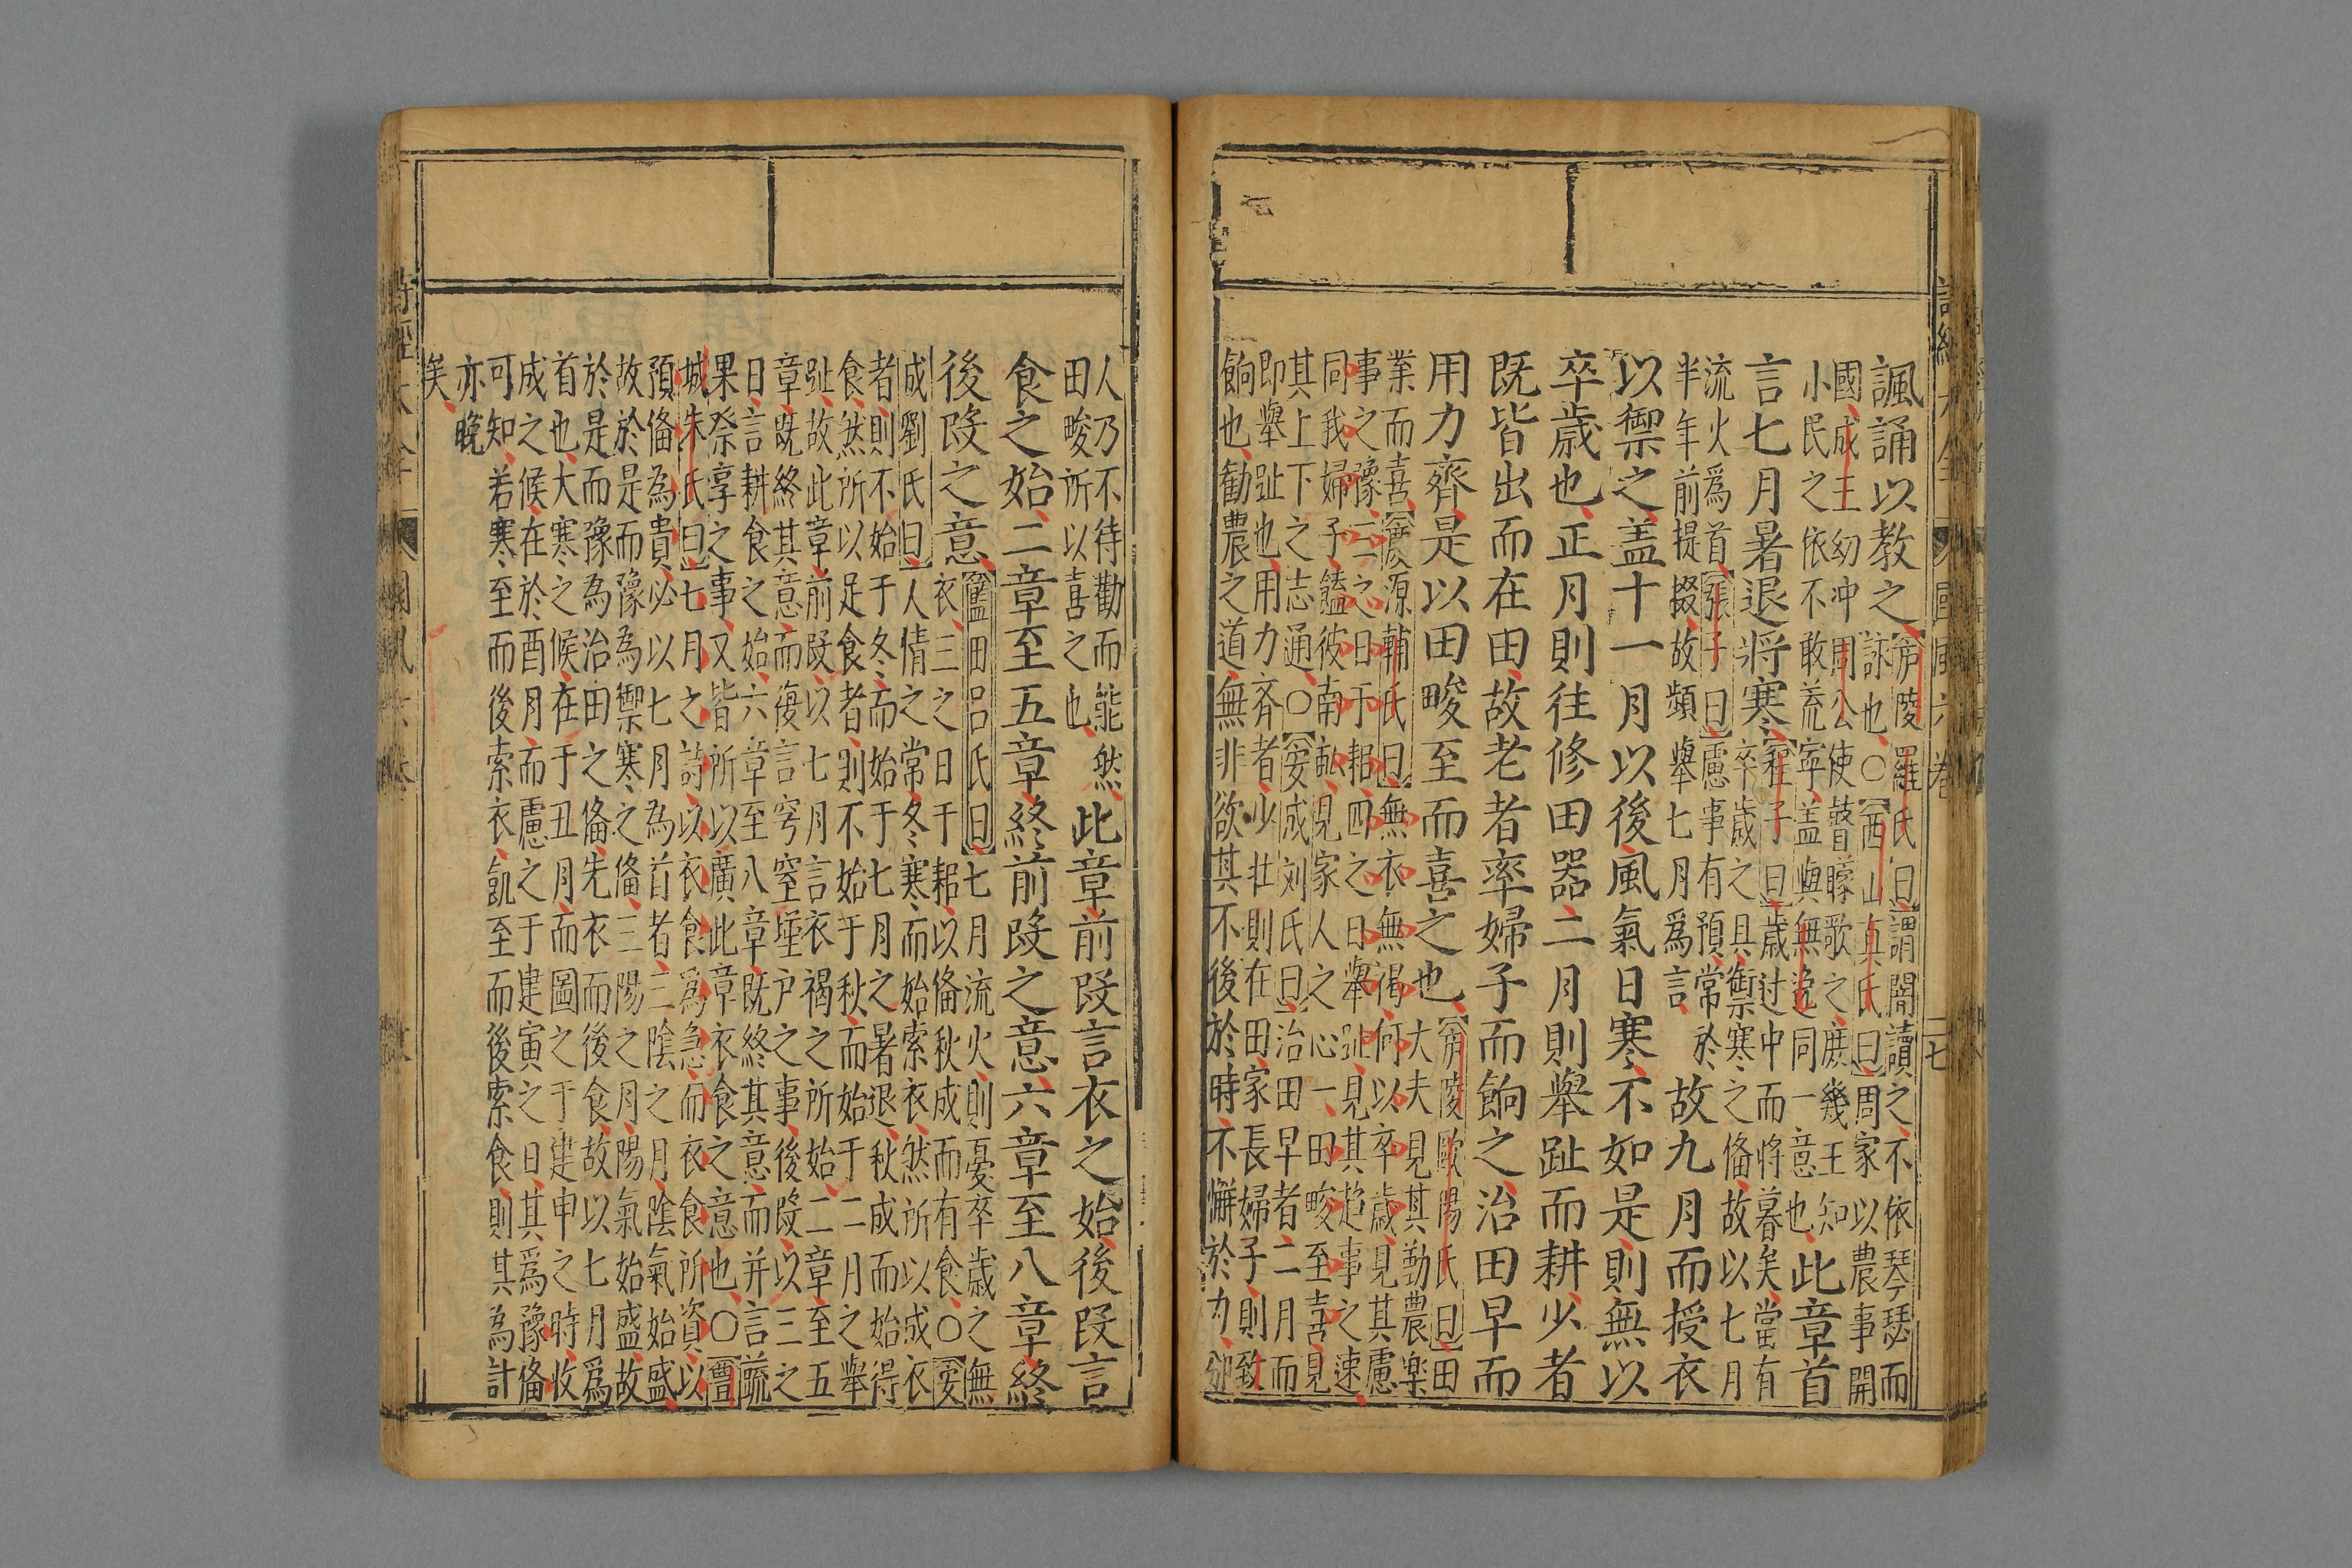 諷誦以教之廬陵羅氏曰謂闇讀之不依琴瑟而
詠也○西山真氏曰周家以農事開
國成王幼冲周公使瞽矇歌之庶幾王知
小民之依不敢荒寧盖與無逸同一意也此章首
言七月暑退將寒程子曰歲过中而將暮矣當有
卒歲之具禦寒之俻故以七月
流火爲首張子曰慮事有預常於
半年前提掇故頻舉七月爲言故九月而授衣
以禦之盖十一月以後風氣日寒不如是則無以
卒歲也正月則往修田器二月則舉趾而耕少者
既皆出而在田故老者率婦子而餉之治田早而
用力齊是以田畯至而喜之也廬陵歐陽氏曰田
大夫見其勤農楽
業而喜慶源輔氏曰無衣無褐何以卒歲見其慮
事之豫三之日于耜四之日舉趾見其趋事之速
同我婦子饁彼南畝見家人之心一田畯至喜見
其上下之志通○安成刘氏曰治田早者二月而
即舉趾也用力齐者少壮則在田家長婦子則致
餉也勸農之道無非欲其不後於時不懈於力
人乃不待勸而能然
田畯所以喜之也此章前段言衣之始後段言
食之始二章至五章終前段之意六章至八章終
後段之意藍田呂氏曰七月流火則憂卒歲之無
衣三之日于耜以俻秋成而有食○安
成劉氏曰人情之常冬寒而始索衣然所以成衣
者則不始于冬而始于七月之暑退秋成而始得
食然所以足食者則不始于秋而始于二月之舉
趾故此章前段以七月言衣褐之所始二章至五
章既終其意而復言穹窒墐户之事後段以三之
日言耕食之始六章至八章既終其意而并言蔬
果祭享之事又皆所以廣此章衣食之意也○豐
城朱氏曰七月之詩以衣食爲急而衣食所資以
預俻為貴必以七月為首者三陰之月陰氣始盛
故於是而豫為禦寒之俻三陽之月陽氣始盛故
於是而豫為治田之俻先衣而後食故以七月爲
首也大寒之候在于丑月而圖之于建申之時收
成之候在於酉月而慮之于建寅之日其爲豫俻
可知若寒至而後索衣飢至而後索食則其為計
亦晚
矣
國風六卷
二七